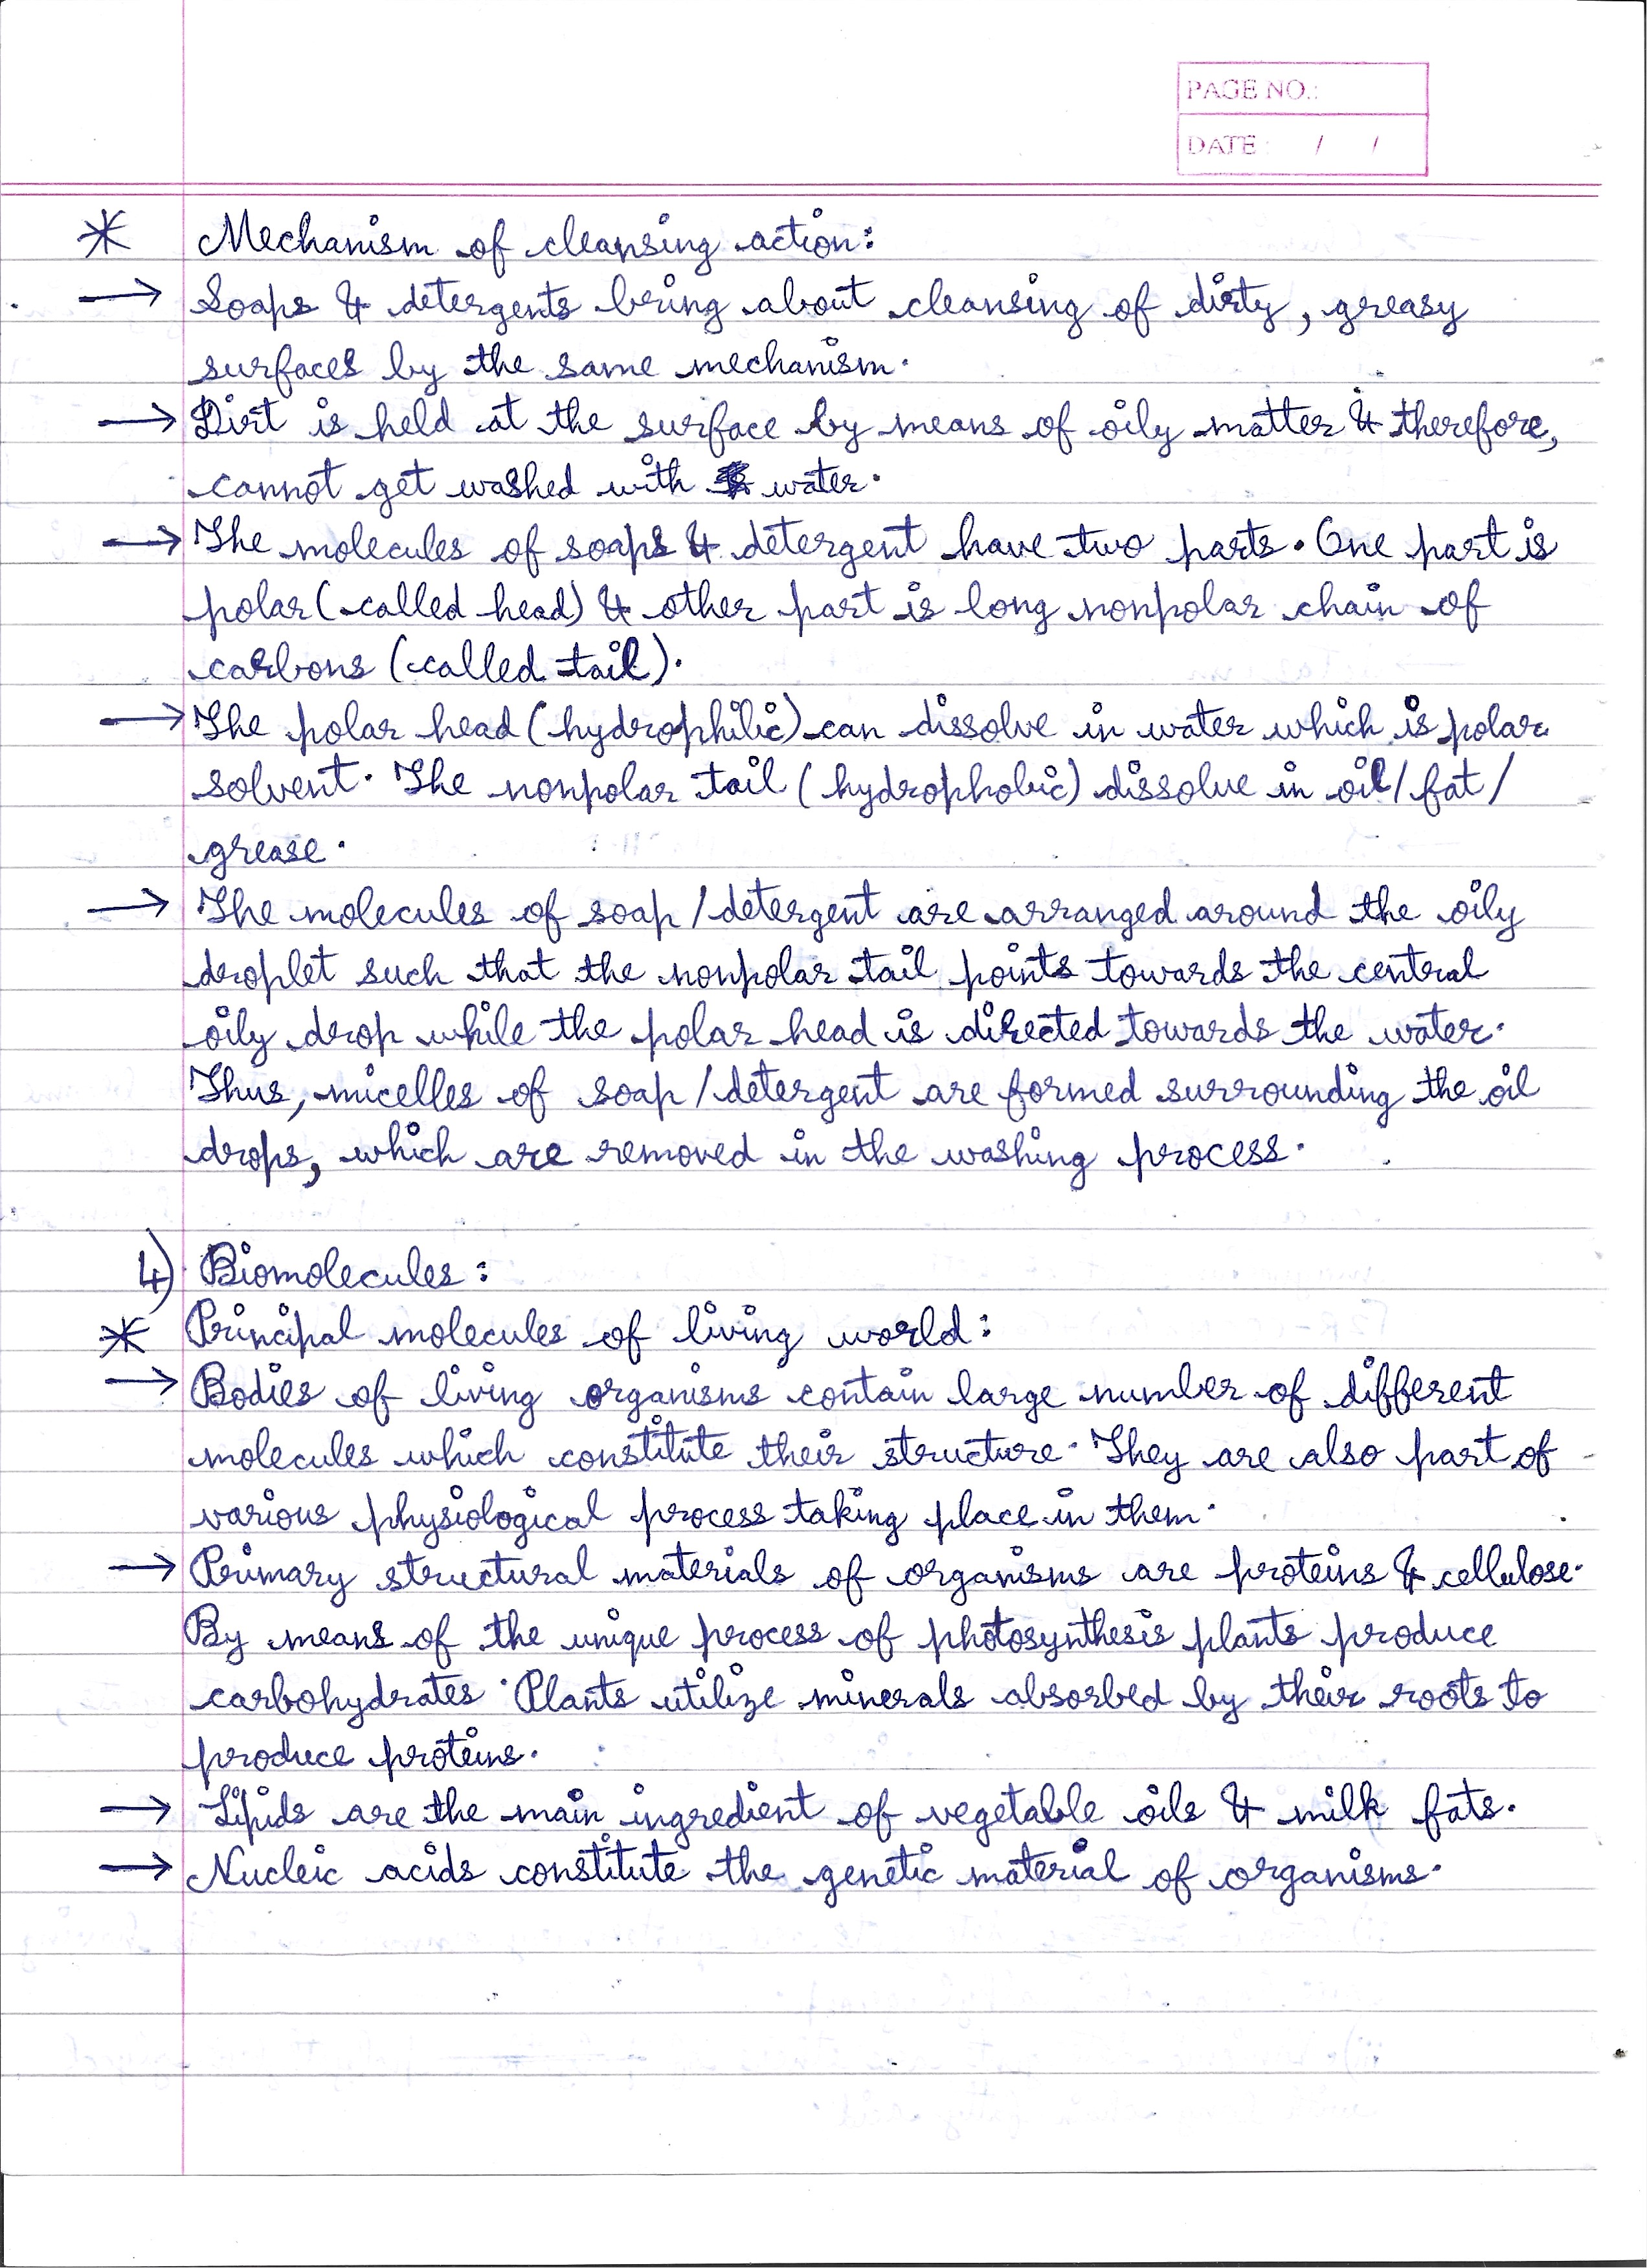 PAGE NO.:
DATE : / /
* Mechanism of cleansing action:
→ Soaps & detergents bring about cleansing of dirty, greasy
surfaces by the same mechanism.
→ Dirt is held at the surface by means of oily matter & therefore,
cannot get washed with water.
→ The molecules of soaps & detergent have two parts. One part is
polar (called head) & other part is long nonpolar chain of
carbons (called tail).
→ The polar head (hydrophilic) can dissolve in water which is polar
solvent. The nonpolar tail (hydrophobic) dissolve in oil/fat/
grease.
→ The molecules of soap/detergent are arranged around the oily
droplet such that the nonpolar tail points towards the central
oily drop while the polar head is directed towards the water.
Thus, micelles of soap/detergent are formed surrounding the oil
drops, which are removed in the washing process.
4) Biomolecules:
* Principal molecules of living world:
→ Bodies of living organisms contain large number of different
molecules which constitute their structure. They are also part of
various physiological process taking place in them.
→ Primary structural materials of organisms are proteins & cellulose.
By means of the unique process of photosynthesis plants produce
carbohydrates. Plants utilize minerals absorbed by their roots to
produce proteins.
→ Lipids are the main ingredient of vegetable oils & milk fats.
→ Nucleic acids constitute the genetic material of organisms.